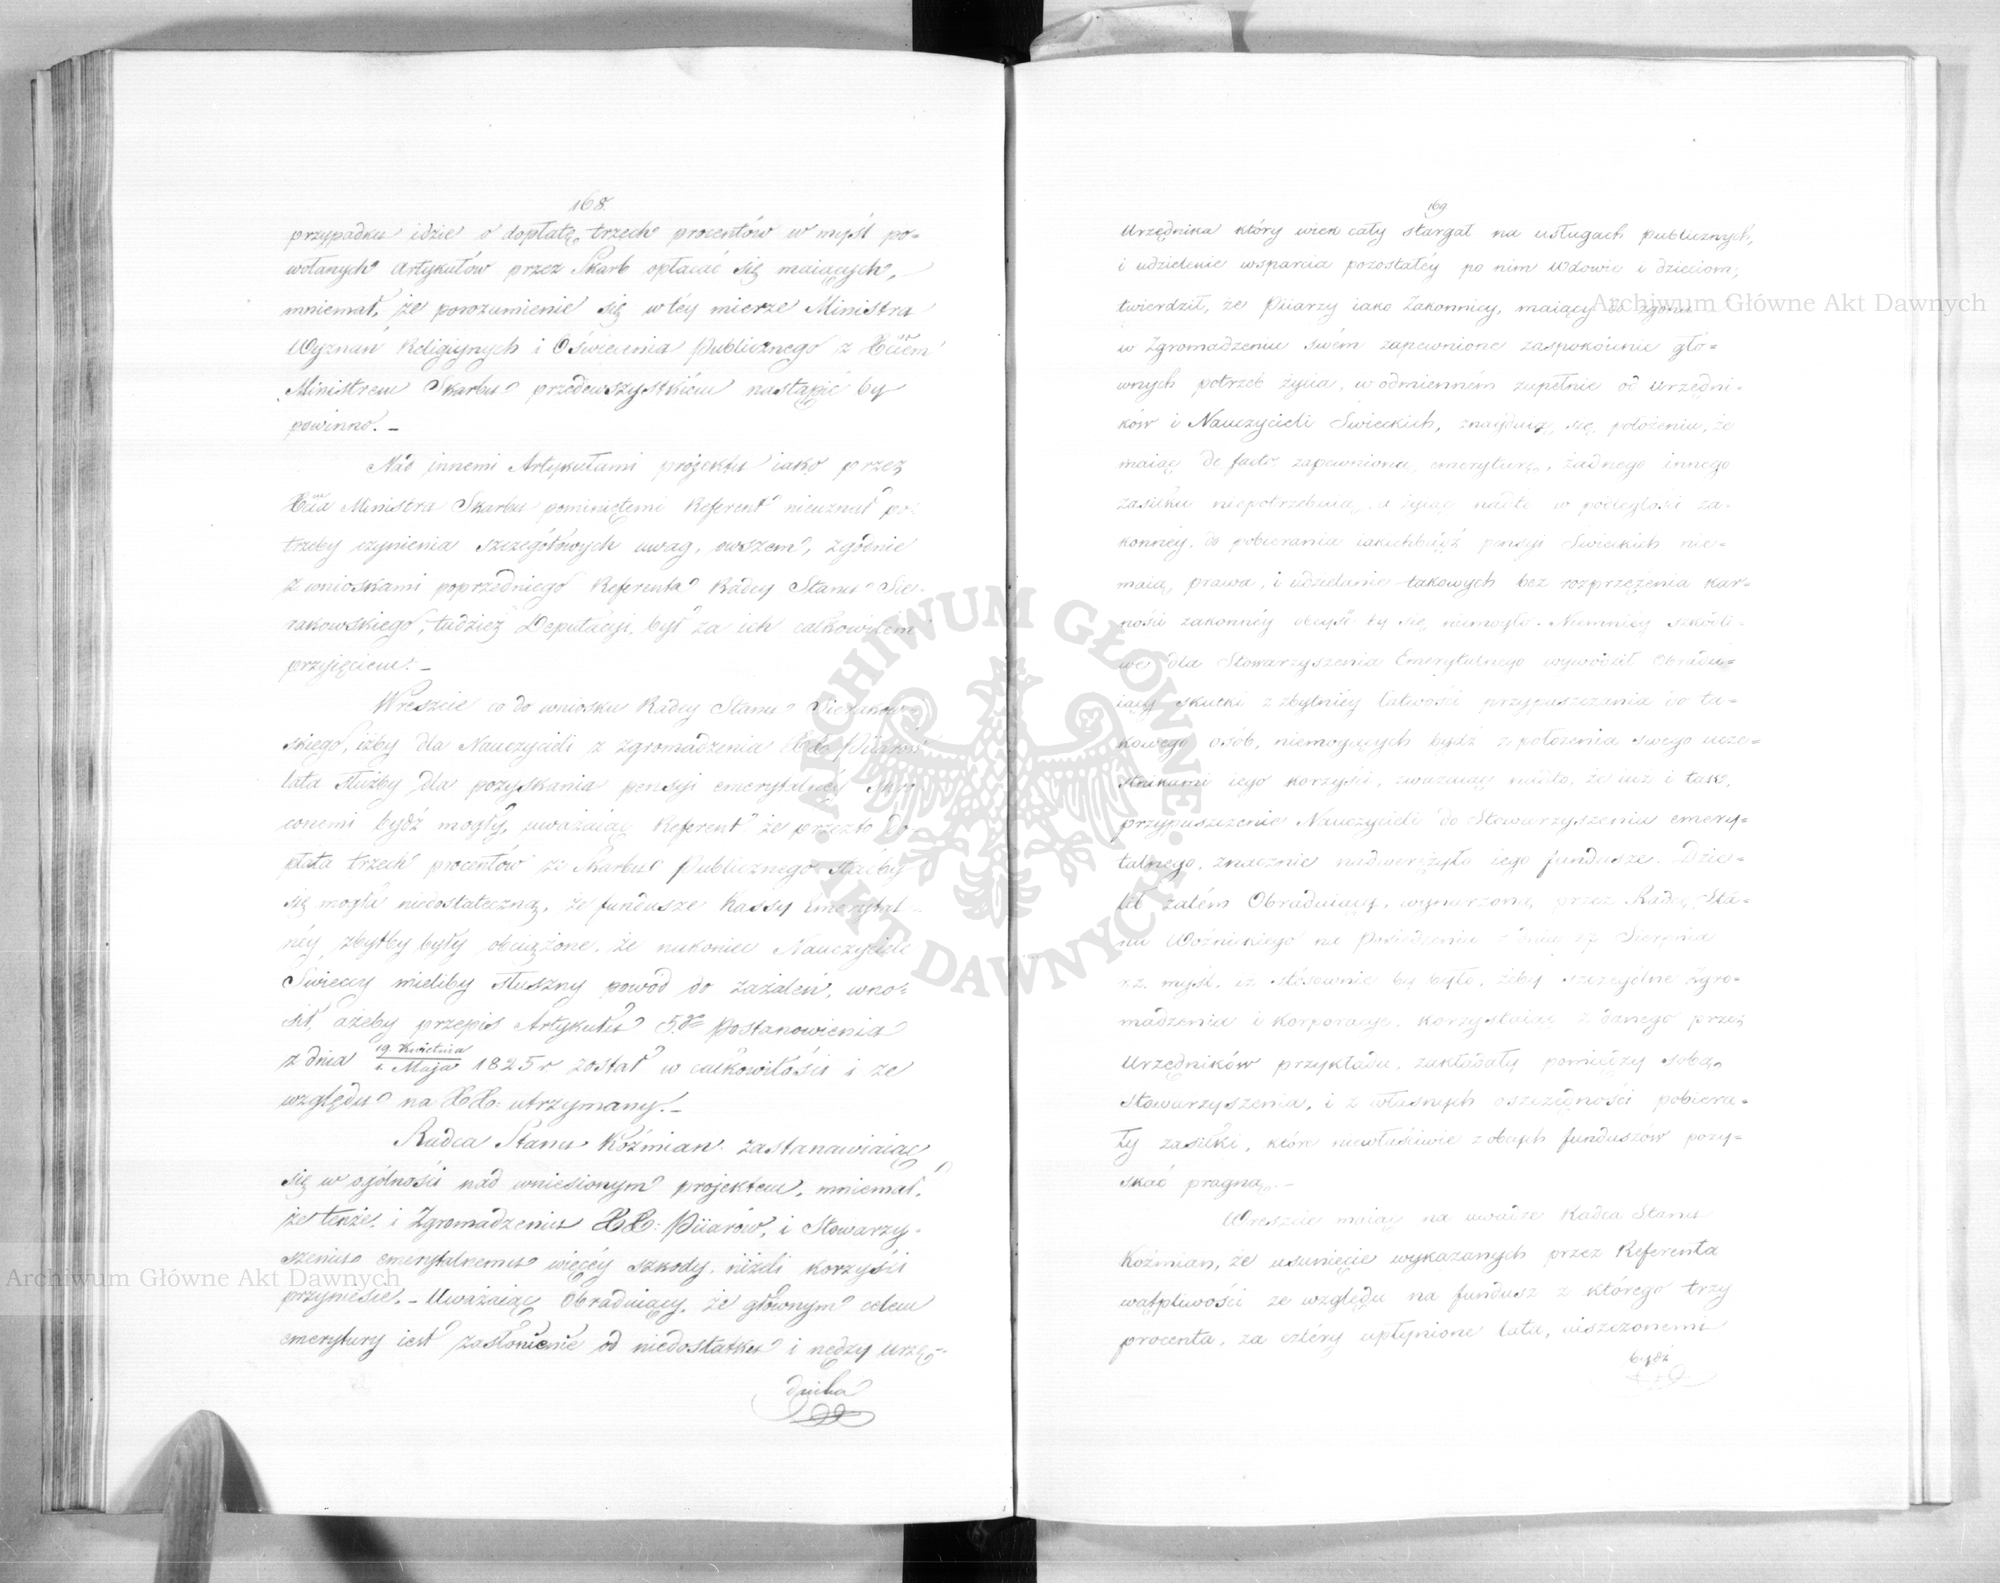 168.
przypadku idzie o dopłatę trzech procentów w myśl po=
wołanych Artykułów przez Skarb opłacać się maiących,
mniemał, że porozumienie się w téy mierze Ministra
Wyznań Religiynych i Oświecenia Publicznego z
Ministrem Skarbu przedewszystkiem nastąpić by
powinno. —
Nad innemi Artykułami projektu iako przez
Ministra Skarbu pominiętemi Referent nieuznał po=
trzeby czynienia szczegółowych uwag, owszem, zgodnie
z wnioskami poprzedniego Referenta Radcy Stanu Sie=
rakowskiego, tudzież Deputacyi, był za ich całkowitem
przyjęciem. —
Wreszcie co do wniosku Radcy Stanu Sierakow=
skiego, iżby dla Nauczycieli z zgromadzenia XX. Piiarów
lata służby dla pozyskania pensyi emerytalnéy skró=
conemi bydź mogły, uważaiąc Referent że przezto do=
płata trzech procentów ze Skarbu Publicznego staćby
się mogła niedostateczną, że fundusze Kassy Emerytal=
néy zbytby były obciążone, że nakoniec Nauczyciele
Świeccy mieliby słuszny powód do zażaleń, wno=
sił, ażeby przepis Artykułu 5.go Postanowienia
z dnia 19. Kwietnia / 1. Maja 1825 r został w całkowitości i ze
względu na XX. utrzymany. —
Radca Stanu Koźmian zastanawiaiąc
się w ogólności nad wniesionym projektem, mniemał,
że tenże i Zgromadzeniu XX. Piiarów, i Stowarzy=
szeniu emerytalnemu więcéy szkody, niżeli korzyści
przyniesie. — Uważaiąc Obraduiący, że głównym celem
emerytury iest zasłonienie od niedostatku i nędzy urzę=
dnika
169
Urzędnika który wiek cały stargał na usługach publicznych,
i udzielenie wsparcia pozostałéy po nim Wdowie i dzieciom;
twierdził, że Piiarzy iako Zakonnicy, maiący do zgonu
w Zgromadzeniu swém zapewnione zaspokoienie głó=
wnych potrzeb życia, w odmienném zupełnie od urzędni=
ków i Nauczycieli Świeckich, znayduią się położeniu, że
maiąc de facto zapewnioną emeryturę, żadnego innego
zasiłku niepotrzebuią, a żyiąc nadto w podległości za=
konnéy, do pobierania iakichbądź pensyi Świeckich nie=
maią prawa, i udzielanie takowych bez rozprzężenia kar=
ności zakonnéy obeyść by się niemogło. Niemniéy szkodli=
we dla Stowarzyszenia Emerytalnego wywodził Obradu=
iący skutki z zbytniéy łatwości przypuszczania do ta=
kowego osób, niemogących bydź z położenia swego ucze=
stnikami iego korzyści, zważaiąc nadto, że iuż i tak,
przypuszczenie Nauczycieli do Stowarzyszenia emery=
talnego, znacznie nadwerężyło iego fundusze. Dzie=
lił zatém Obraduiący, wynurzoną przez Radcę Sta=
nu Woźnickiego na Posiedzeniu dnia 17 Sierpnia
r.z. myśl, iż stosownie by było, żeby szczególne Zgro=
madzenia i Korporacye, korzystaiąc z danego przez
Urzędników przykładu, zakładały pomiędzy sobą
stowarzyszenia, i z własnych oszczędności pobiera=
ły zasiłki, które niewłaściwie z obcych funduszów pozy=
skać pragną. —
Wreszcie maiąc na uwadze Radca Stanu
Koźmian, że usunięcie wykazanych przez Referenta
wątpliwości ze względu na fundusz z którego trzy
procenta, za cztéry upłynione lata, uiszczonemi
bydź
Archiwum Główne Akt Dawnych
Archiwum Główne Akt Dawnych
ARCHIWUM GŁÓWNE AKT DAWNYCH